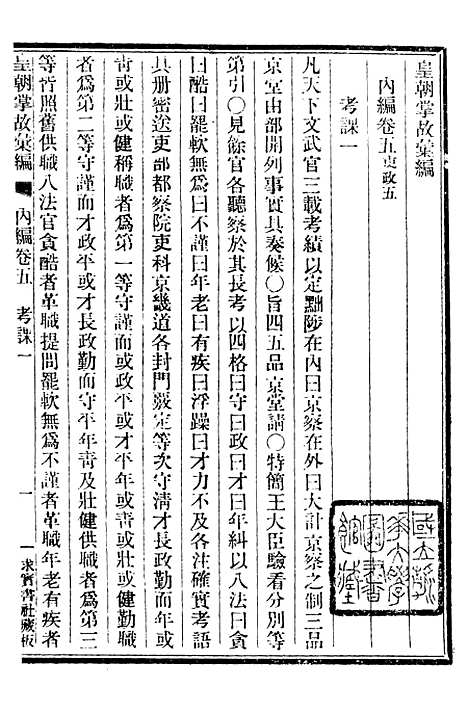 皇朝掌故彙編
內編卷五吏政五
考課一
凡天下文武官三載考績以定黜陟在內曰京察在外曰大計京察之制三品
京堂由部開列事實具奏候〇旨四五品京堂請〇特簡王大臣驗看分別等
第引〇見餘官各聽察於其長考以四格曰守曰政曰才曰年糾以八法曰貪
曰酷曰罷軟無爲曰不謹曰年老曰有疾曰浮躁曰才力不及各注確實考語
具册密送吏部都察院吏科京畿道各封門嚴定等次守清才長政勤而年或
靑或壯或健稱職者爲第一等守謹而或政平或才平年或靑或壯或健供職
者爲第二等守謹而才政平或才長政勤而守平年靑及壯健供職者爲第三
等皆照舊供職八法官貪酷者革職提問罷軟無爲不謹者革職年老有疾者
皇朝掌故彙編 內編卷五 考課一 一 求實書社藏板
國立
華大學
圖書
館藏